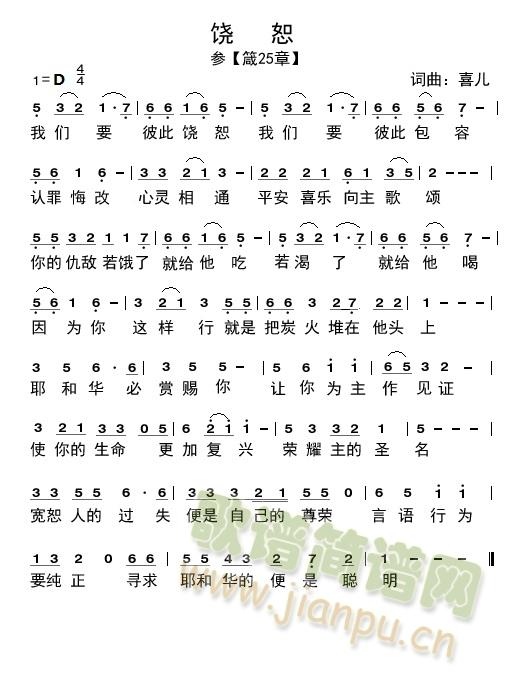 饶 恕
参【箴25章】
1=D 4/4 词曲：喜儿
5 3 2 1·7 | 6 6 1 6 5 | 5 3 2 1·7 | 6 6 5 6 - |
我们 要 彼此 饶 恕 我 们 要 彼此 包 容
5 5 6 1 6 - | 3 3 2 1 3 | 2 2 2 1 6 1 3 5 | 2 - - - |
认罪 悔 改 心灵 相 通 平安 喜乐 向主 歌 颂
5 5 3 2 1 1 7 | 6 6 1 6 5 | 5 3 2 1·7 | 6 6 5 6 - |
你的 仇敌 若饿了 就给 他 吃 若 渴 了 就给 他 喝
5 6 1 6 - | 3 2 1 5 5 | 6 6 6 3 2 7 2 | 1 - - - |
因 为 你 这 样 行 就是 把炭 火 堆在 他头 上
3 5 6·6 | 3 5 5 - | 5 6 1 1 | 6 5 3 2 - |
耶 和 华 必 赏 赐 你 让 你 为 主 作 见 证
3 2 1 3 3 0 5 | 6 2 1 1 - | 5 5 3 3 3 2 | 1 - 5 - |
使 你的 生命 更 加 复 兴 荣 耀 主的 圣 名
3 3 5 5 6·6 | 3 3 3 2 1 5 5 0 | 6 5 1 1 |
宽恕 人的 过 失 便是 自 己的 尊荣 言 语 行 为
1 3 2 0 6 6 | 5 5 4 3 2 2 | 2 7 2 | 1 - - - ‖
要纯 正 寻求 耶和 华的 便 是 聪 明
歌谱简谱网
www.jianpu.cn